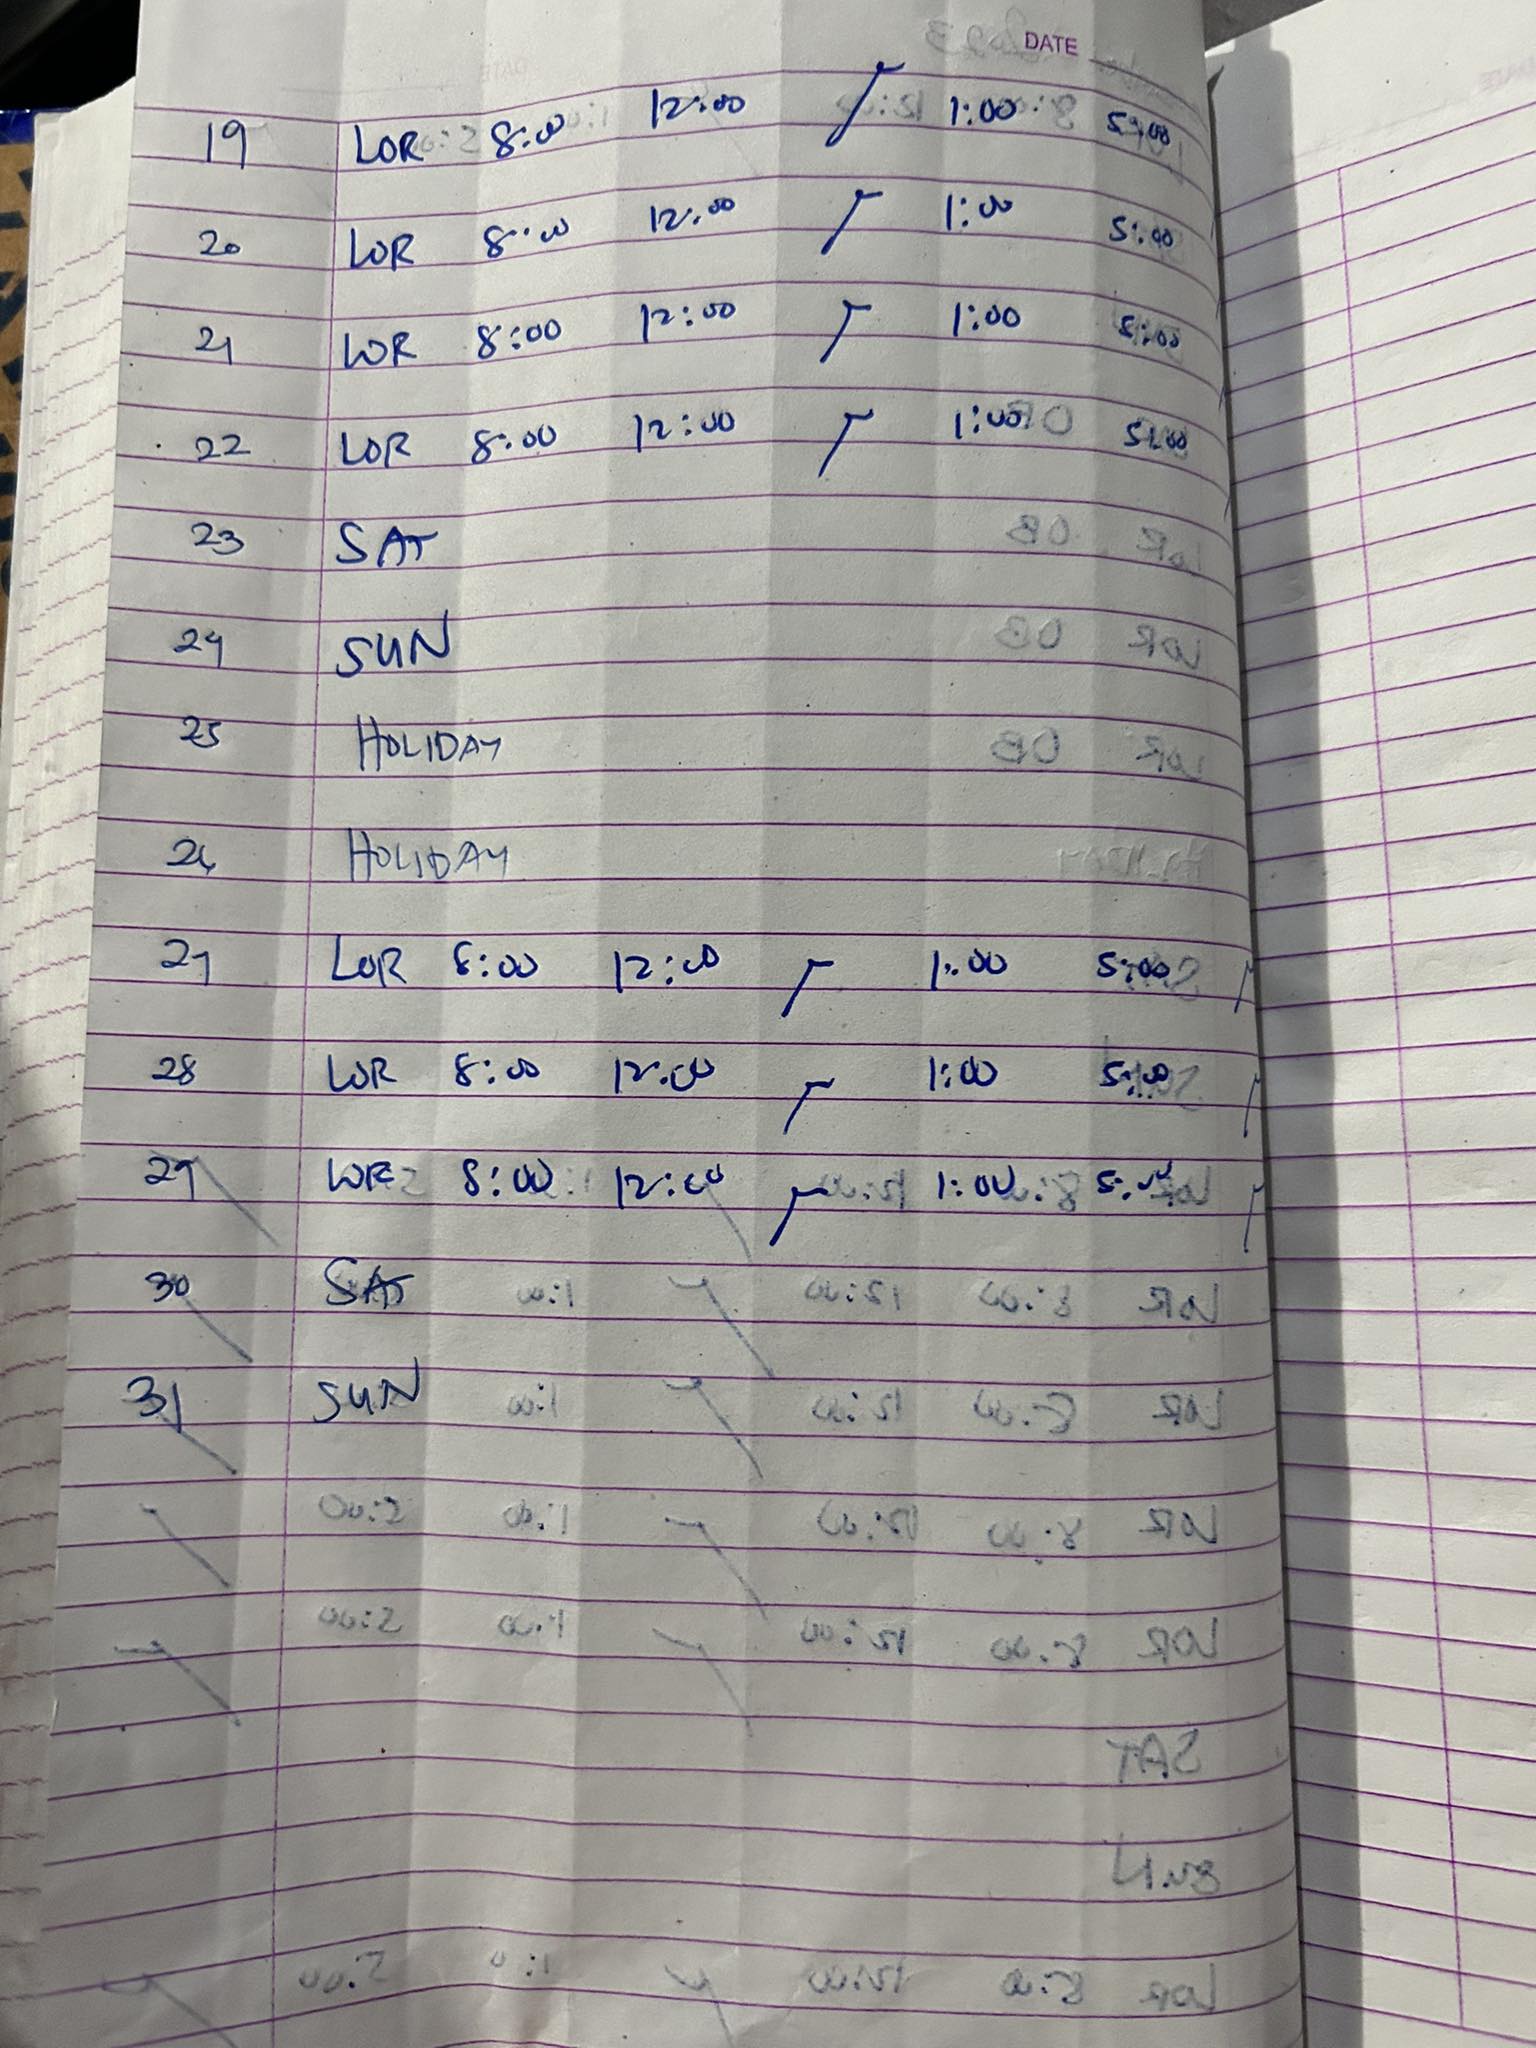 DATE
19 LOR 8:00 12:00 1:00 5:00
20 LOR 8:00 12:00 1:00 5:00
21 LOR 8:00 12:00 1:00 5:00
22 LOR 8:00 12:00 1:00 5:00
23 SAT
24 SUN
25 HOLIDAY
26 HOLIDAY
27 LOR 8:00 12:00 1:00 5:00
28 LOR 8:00 12:00 1:00 5:00
29 LOR 8:00 12:00 1:00 5:00
30 SAT
31 SUN